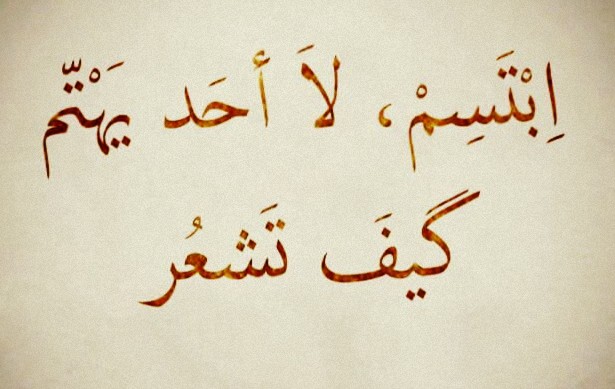 اِبْتَسِمْ، لاَ أحَد يَهْتّم
كَيفَ تَشعُر